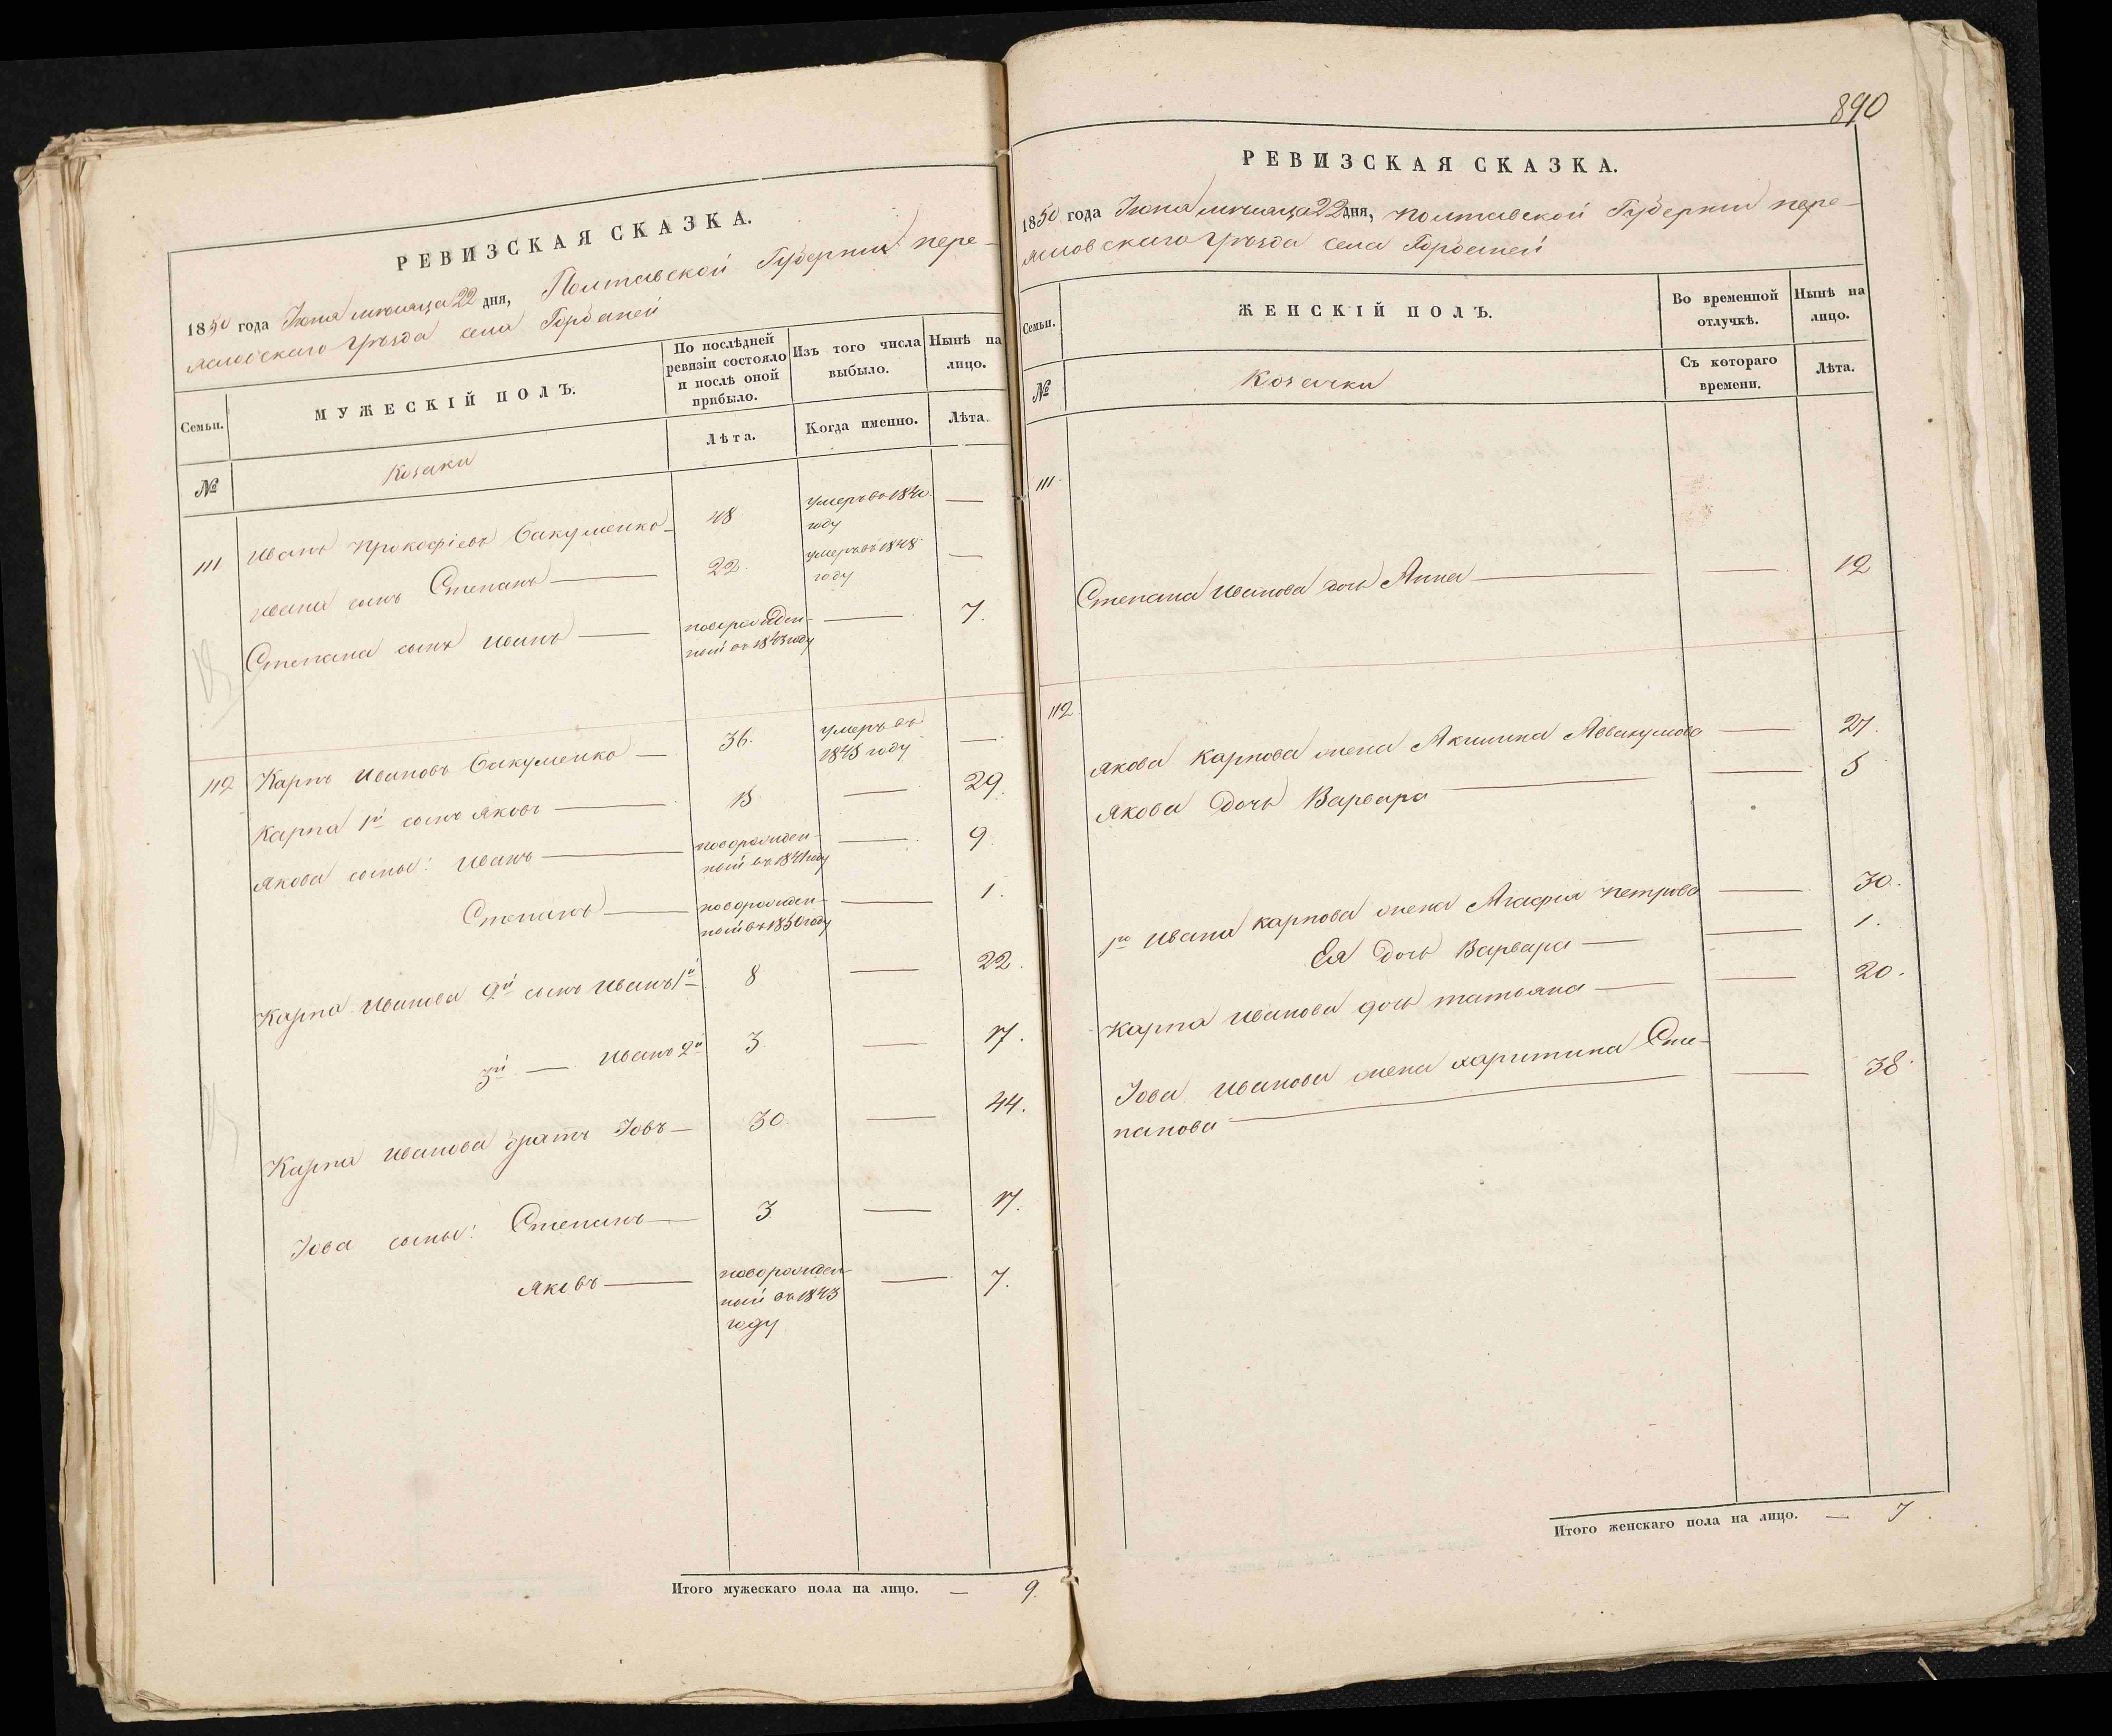 РЕВИЗСКАЯ СКАЗКА.
1850 года Июня мѣсяца 22 дня, Полтавской Губерніи пере-
яславскаго Уѣзда села
Семьи.
МУЖЕСКІЙ ПОЛЪ.
По послѣдней ревизіи состояло и послѣ оной прибыло.
Изъ того числа выбыло.
Нынѣ на лицо.
№
Козаки
Лѣта.
Когда именно.
Лѣта.
111 Иванъ Прокофіевъ Бакуменко — 48. умеръ въ 1840 году —
Ивана сынъ Степанъ — 22. умеръ въ 1848 году —
Степана сынъ Иванъ — новорожден-
ный въ 1843 году — 7.
112 Карпъ Ивановъ Бакуменко — 36. умеръ въ
1845 году —.
Карпа 1й сынъ Яковъ — 15 — 29.
Якова сыны: Иванъ — новорожден-
ный въ 1841 году — 9
Степанъ — новорожден-
ный въ 1850 году — 1.
Карпа Иванова 2й сынъ Иванъ 1й — 8 — 22.
3й — Иванъ 2й 3. — 17.
Карпа Иванова братъ Іовъ — 30. — 44.
Іова сыны: Степанъ — 3 — 17.
Яковъ — новорожден-
ный въ 1843
году — 7.
Итого мужескаго пола на лицо. — 9.
890
РЕВИЗСКАЯ СКАЗКА.
1850 года Июня мѣсяца 22 дня, Полтавской Губерніи пере-
яславскаго Уѣзда села
Семьи.
ЖЕНСКІЙ ПОЛЪ.
Во временной отлучкѣ.
Нынѣ на лицо.
№
Козачки
Съ котораго времени.
Лѣта.
111.
Степана Иванова дочь Анна — — 12
112
Якова Карпова жена Акилина Аввакумова — 27.
Якова дочь Варвара — — 5
1го Ивана Карпова жена Агафия Петрова — 30.
Ея дочь Варвара — — 1.
Карпа Иванова дочь Татьяна — — 20.
Іова Иванова жена Харитина Сте-
панова — — 38.
Итого женскаго пола на лицо. — 7.